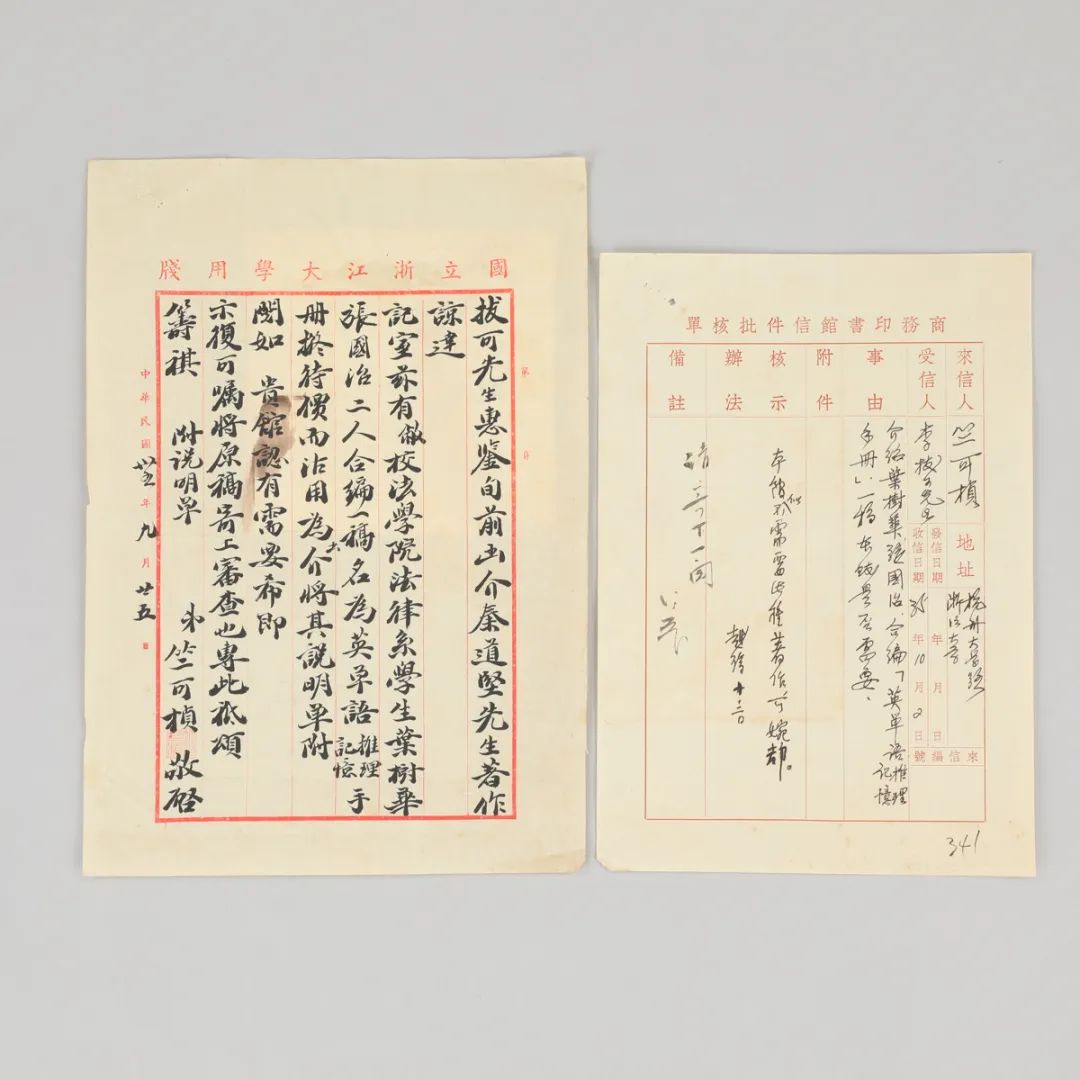 國立浙江大學用牋
拔可先生惠鑒旬前函介秦道堅先生著作
諒達
記室茲有敝校法學院法律系學生葉樹華
張國治二人合編一稿名為英單語推理記憶手
冊擬待價而沽用為介將其說明單附
聞如 貴館認有需要希即
示復可囑將原稿寄上審查也專此祗頌
籌祺 附說明單 弟竺可楨敬啓
中華民國卅五年九月廿五日
商務印書館信件批核單
來信人 竺可楨 地址 杭州大學路 浙江大學
受信人 李拔可先生 發信日期 年 月 日 收信日期 35年10月2日 來信編號
事由 介紹葉樹華張國治合編「英單語推理記憶
手冊」一稿 是否需要、
附件
核示 本館似不需要此種著作可婉卻。
辦法
備註
341